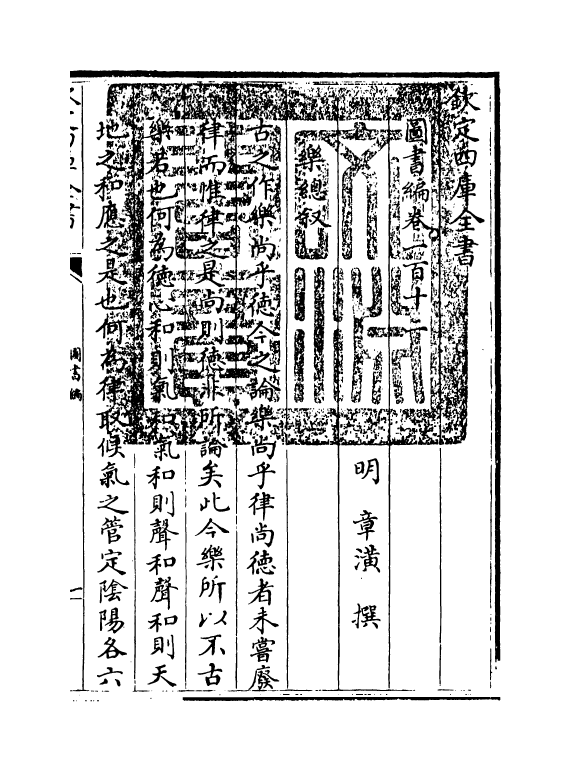 欽定四庫全書
圖書編卷一百十二
明 章潢 撰
樂總敘
古之作樂尚乎德今之論樂尚乎律尚德者未嘗廢
律而惟律之是尚則德非所論矣此今樂所以不古
樂若也何為德心和則氣和氣和則聲和聲和則天
地之和應之是也何為律取候氣之管定陰陽各六
圖書編
一